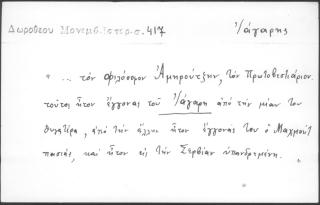 Δωροθεου Μονεμβ. Ιστορ. σ. 417
Ἰάγαρης
"... τὸν φιλόσοφον Ἀμηρούτζην, τὸν Πρωτοβεστιάριον.
τοῦτοι ἦτον ἔγγονας τοῦ Ἰάγαρη ἀπὸ τὴν μίαν του
θυγατέρα, ἀπὸ τὴν ἄλλην ἦτον ἔγγονάς του ὁ Μαχμοὺτ
πασιάς, καὶ ἦτον εἰς τὴν Σερβίαν ὑπανδρεμένη.